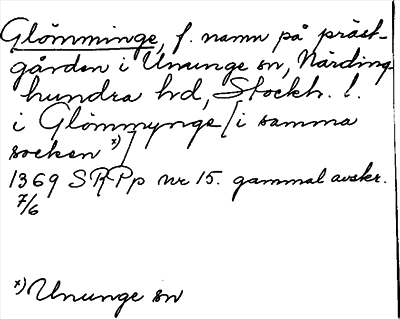 Glömminge, f. namn på präst-
gården i Ununge sn, Närding-
hundra hd, Stockh. l.
i Glömmynge [i samma
socken x)]
1369 SRPp nr 15. gammal avskr.
7/6
x) Ununge sn